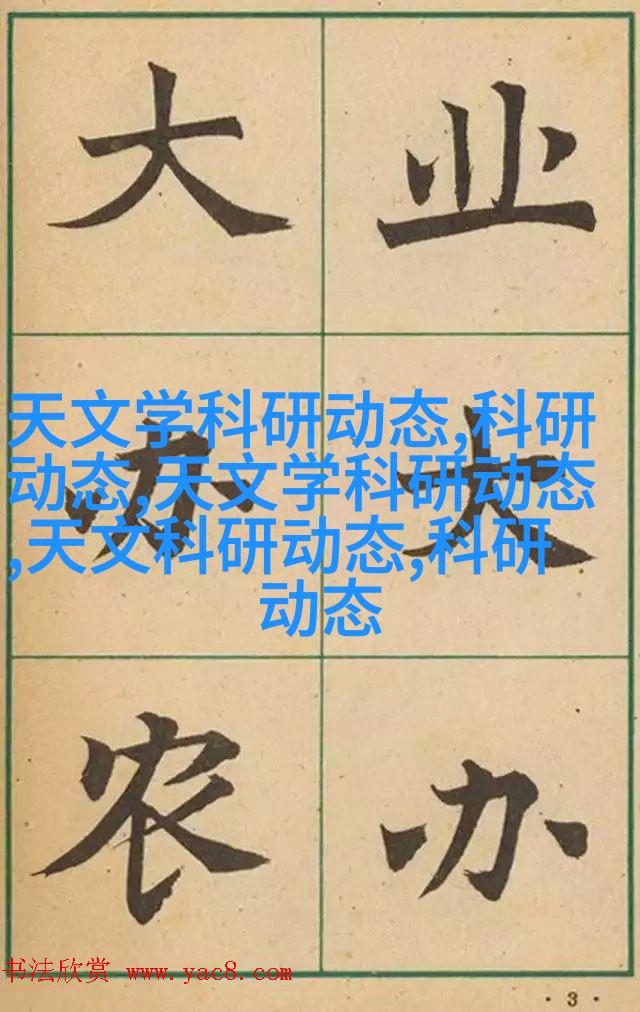 大 业
天文学科研动态,科研
动态,天文学科研动态
,天文科研动态,科研
动态
办 大
农 办
书法欣赏 www.yac8.com
·3·